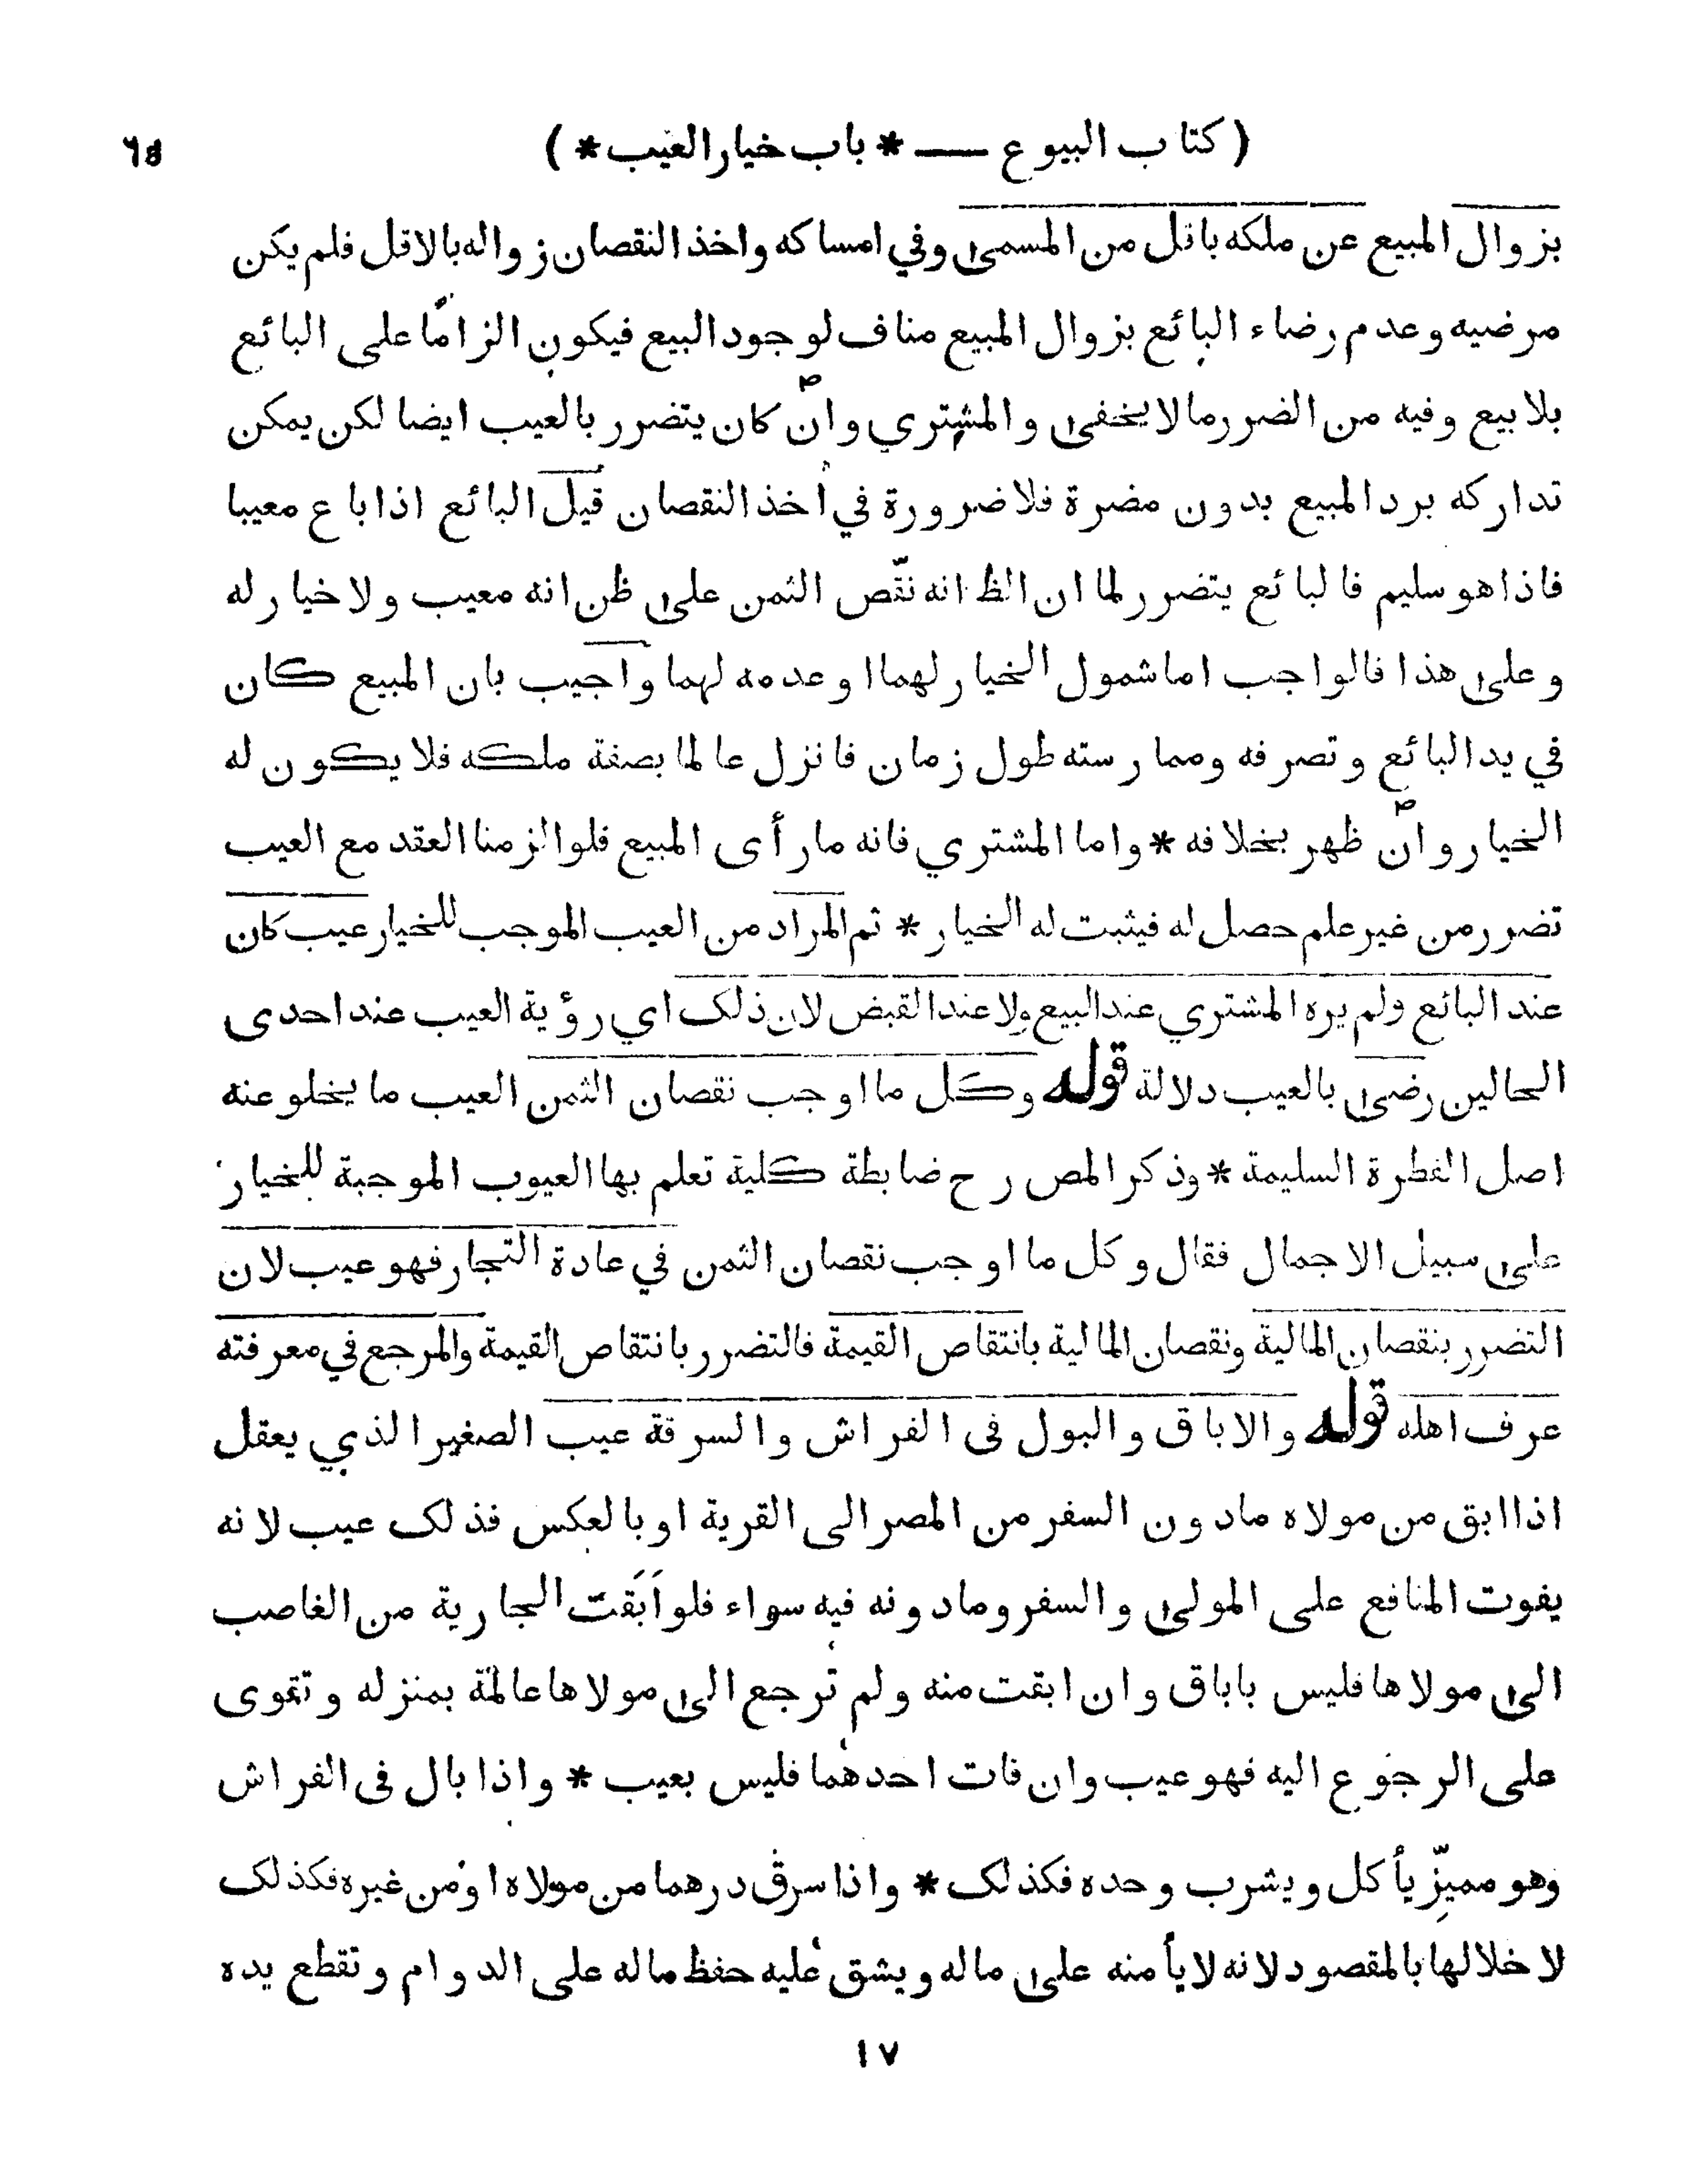 ( كتاب البيوع — * باب خيار العيب * )
٦٥
بزوال المبيع عن ملكه باقل من المسمى وفي امساكه واخذ النقصان زواله بالاقل فلم يكن
مرضيه وعدم رضاء البائع بزوال المبيع مناف لوجود البيع فيكون الزامًا على البائع
بلا بيع وفيه من الضرر ما لا يخفى والمشتري وان كان يتضرر بالعيب ايضا لكن يمكن
تداركه برد المبيع بدون مضرة فلا ضرورة في أخذ النقصان قيل البائع اذا باع معيبا
فاذا هو سليم فالبائع يتضرر لما ان الظ انه نقّص الثمن على ظن انه معيب ولا خيار له
وعلى هذا فالواجب اما شمول الخيار لهما او عدمه لهما واجيب بان المبيع كان
في يد البائع وتصرفه وممارسته طول زمان فانزل عالما بصفة ملكه فلا يكون له
الخيار وان ظهر بخلافه * واما المشتري فانه ما رأى المبيع فلو الزمنا العقد مع العيب
تضرر من غير علم حصل له فيثبت له الخيار * ثم المراد من العيب الموجب للخيار عيب كان
عند البائع ولم يره المشتري عند البيع ولا عند القبض لان ذلك اي رؤية العيب عند احدى
الحالين رضى بالعيب دلالة قوله وكل ما اوجب نقصان الثمن العيب ما يخلو عنه
اصل الفطرة السليمة * وذكر المص رح ضابطة كلية تعلم بها العيوب الموجبة للخيار
على سبيل الاجمال فقال وكل ما اوجب نقصان الثمن في عادة التجار فهو عيب لان
التضرر بنقصان المالية ونقصان المالية بانتقاص القيمة فالتضرر بانتقاص القيمة والمرجع في معرفته
عرف اهله قوله والاباق والبول في الفراش والسرقة عيب الصغير الذي يعقل
اذا ابق من مولاه مادون السفر من المصر الى القرية او بالعكس فذلك عيب لانه
يفوت المنافع على المولى والسفر ومادونه فيه سواء فلو اَبَقَت الجارية من الغاصب
الى مولاها فليس باباق وان ابقت منه ولم ترجع الى مولاها عالمة بمنزله وتقوى
على الرجوع اليه فهو عيب وان فات احدهما فليس بعيب * واذا بال في الفراش
وهو مميّز يأكل ويشرب وحده فكذلك * واذا سرق درهما من مولاه او من غيره فكذلك
لاخلالها بالمقصود لانه لا يأمنه على ماله ويشق عليه حفظ ماله على الدوام وتقطع يده
١٧